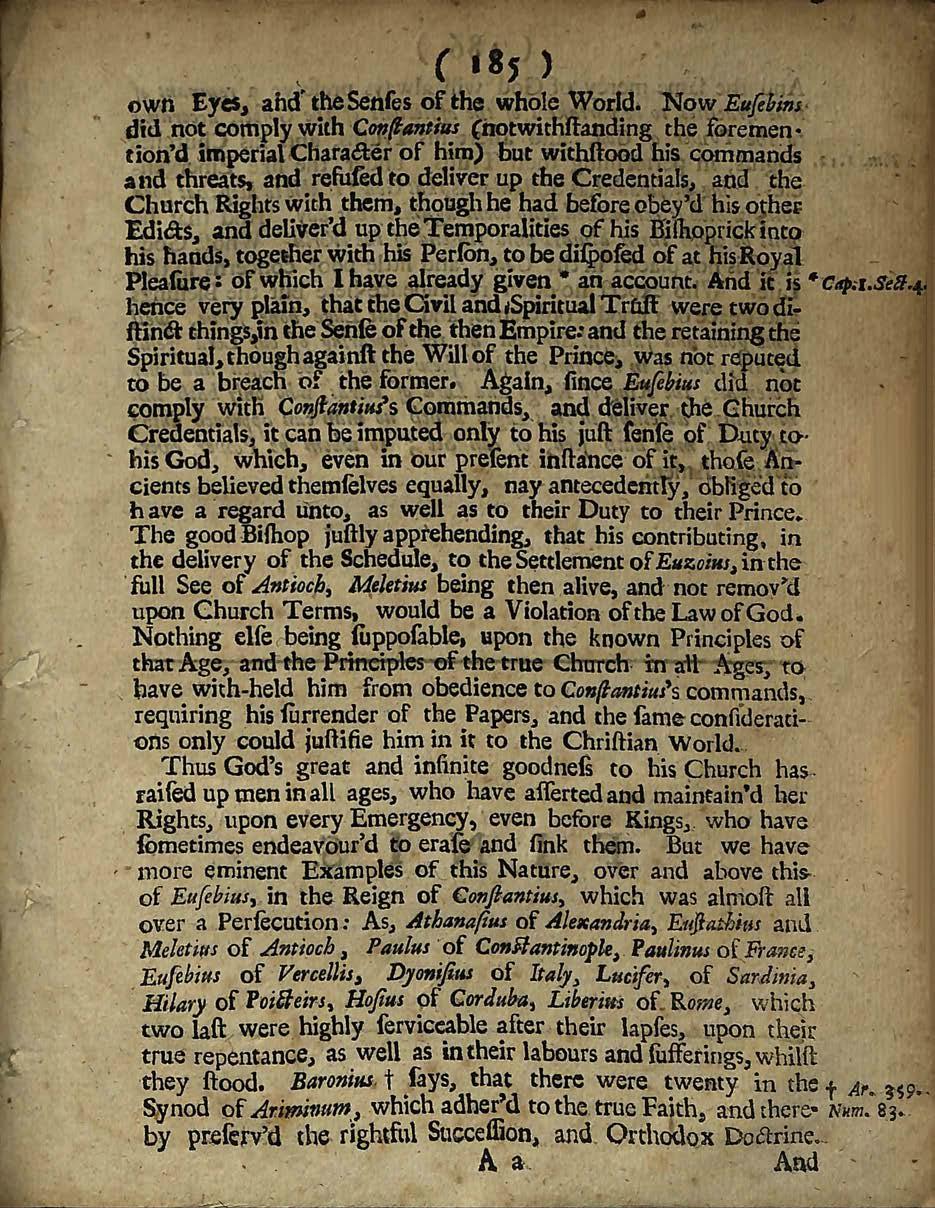 ( 185 )
own Eyes, and the Senſes of the whole World. Now Euſebins
did not comply with Conſtantius (notwithſtanding the foremen-
tion'd imperial Character of him) but withſtood his commands
and threats, and refuſed to deliver up the Credentials, and the
Church Rights with them, though he had before obey'd his other
Edicts, and deliver'd up the Temporalities of his Biſhoprick into
his hands, together with his Perſon, to be diſpoſed of at his Royal
Pleaſure: of which I have already given * an account. And it is * Cap. 1. Sect. 4.
hence very plain, that the Civil and Spiritual Truſt were two di-
ſtinct things, in the Senſe of the then Empire: and the retaining the
Spiritual, though againſt the Will of the Prince, was not reputed
to be a breach of the former. Again, ſince Euſebius did not
comply with Conſtantius's Commands, and deliver the Church
Credentials, it can be imputed only to his juſt ſenſe of Duty to
his God, which, even in our preſent inſtance of it, thoſe An-
cients believed themſelves equally, nay antecedently, obliged to
have a regard unto, as well as to their Duty to their Prince.
The good Biſhop juſtly apprehending, that his contributing, in
the delivery of the Schedule, to the Settlement of Euzoius, in the
full See of Antioch, Meletius being then alive, and not remov'd
upon Church Terms, would be a Violation of the Law of God.
Nothing elſe being ſuppoſable, upon the known Principles of
that Age, and the Principles of the true Church in all Ages, to
have with-held him from obedience to Conſtantius's commands,
requiring his ſurrender of the Papers, and the ſame conſiderati-
ons only could juſtifie him in it to the Chriſtian World.
Thus God's great and infinite goodneſs to his Church has
raiſed up men in all ages, who have aſſerted and maintain'd her
Rights, upon every Emergency, even before Kings, who have
ſometimes endeavour'd to eraſe and ſink them. But we have
more eminent Examples of this Nature, over and above this
of Euſebius, in the Reign of Conſtantius, which was almoſt all
over a Perſecution: As, Athanaſius of Alexandria, Euſtathius and
Meletius of Antioch, Paulus of Conſtantinople, Paulinus of France,
Euſebius of Vercellis, Dyoniſius of Italy, Lucifer, of Sardinia,
Hilary of Poicteirs, Hoſius of Corduba, Liberius of Rome, which
two laſt were highly ſerviceable after their lapſes, upon their
true repentance, as well as in their labours and ſufferings, whilſt
they ſtood. Baronius † ſays, that there were twenty in the † Ar. 359.
Synod of Ariminum, which adher'd to the true Faith, and there- Num. 83.
by preſerv'd the rightful Succeſſion, and Orthodox Doctrine.
A a And